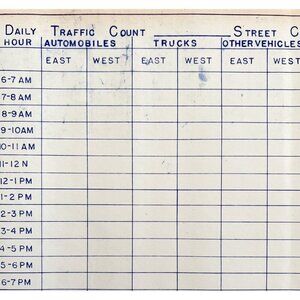 DAILY TRAFFIC COUNT STREET C
HOUR AUTOMOBILES TRUCKS OTHER VEHICLES
EAST WEST EAST WEST EAST
6-7 AM
7-8 AM
8-9 AM
9-10AM
10-11 AM
11-12 N
12-1 PM
1-2 PM
2-3 PM
3-4 PM
4-5 PM
5-6 PM
6-7 PM